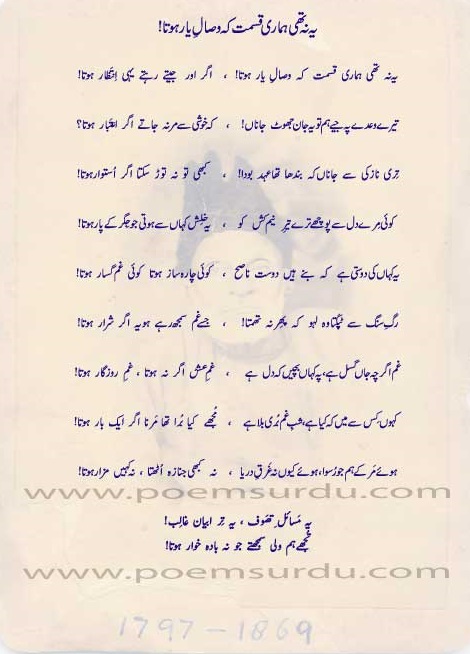 یہ نہ تھی ہماری قسمت کہ وصالِ یار ہوتا!
یہ نہ تھی ہماری قسمت کہ وصالِ یار ہوتا! ، اگر اور جیتے رہتے یہی اِنتظار ہوتا!
تیرے وعدے پہ جیے ہم تو یہ جان جھوٹ جاناں! ، کہ خوشی سے مر نہ جاتے اگر اعتبار ہوتا؟
تِری نازکی سے جاناں کہ بندھا تھا عہد بودا! ، کبھی تو نہ توڑ سکتا اگر اُستوار ہوتا!
کوئی مِرے دل سے پوچھے ترے تیرِ نیم کش کو ، یہ خلِش کہاں سے ہوتی جو جگر کے پار ہوتا!
یہ کہاں کی دوستی ہے کہ بنے ہیں دوست ناصح ، کوئی چارہ ساز ہوتا کوئی غم گسار ہوتا!
رگِ سنگ سے ٹپکتا وہ لہو کہ پھر نہ تھمتا! ، جسے غم سمجھ رہے ہو یہ اگر شرار ہوتا!
غم اگرچہ جاں گسل ہے، پہ کہاں بچیں کہ دل ہے ، غمِ عشق اگر نہ ہوتا ، غمِ روزگار ہوتا!
کہوں کِس سے میں کہ کیا ہے، شبِ غم بُری بلا ہے ، مُجھے کیا بُرا تھا مَرنا اگر ایک بار ہوتا!
ہوئے مَر کے ہم جو رُسوا، ہوئے کیوں نہ غرقِ دریا ، نہ کبھی جنازہ اُٹھتا ، نہ کہیں مزار ہوتا!
www.poemsurdu.com
یہ مَسائلِ تصّوف ، یہ تِرا بیان غالِب!
تُجھے ہم ولی سمجھتے جو نہ بادہ خوار ہوتا!
www.poemsurdu.com
1797 - 1869